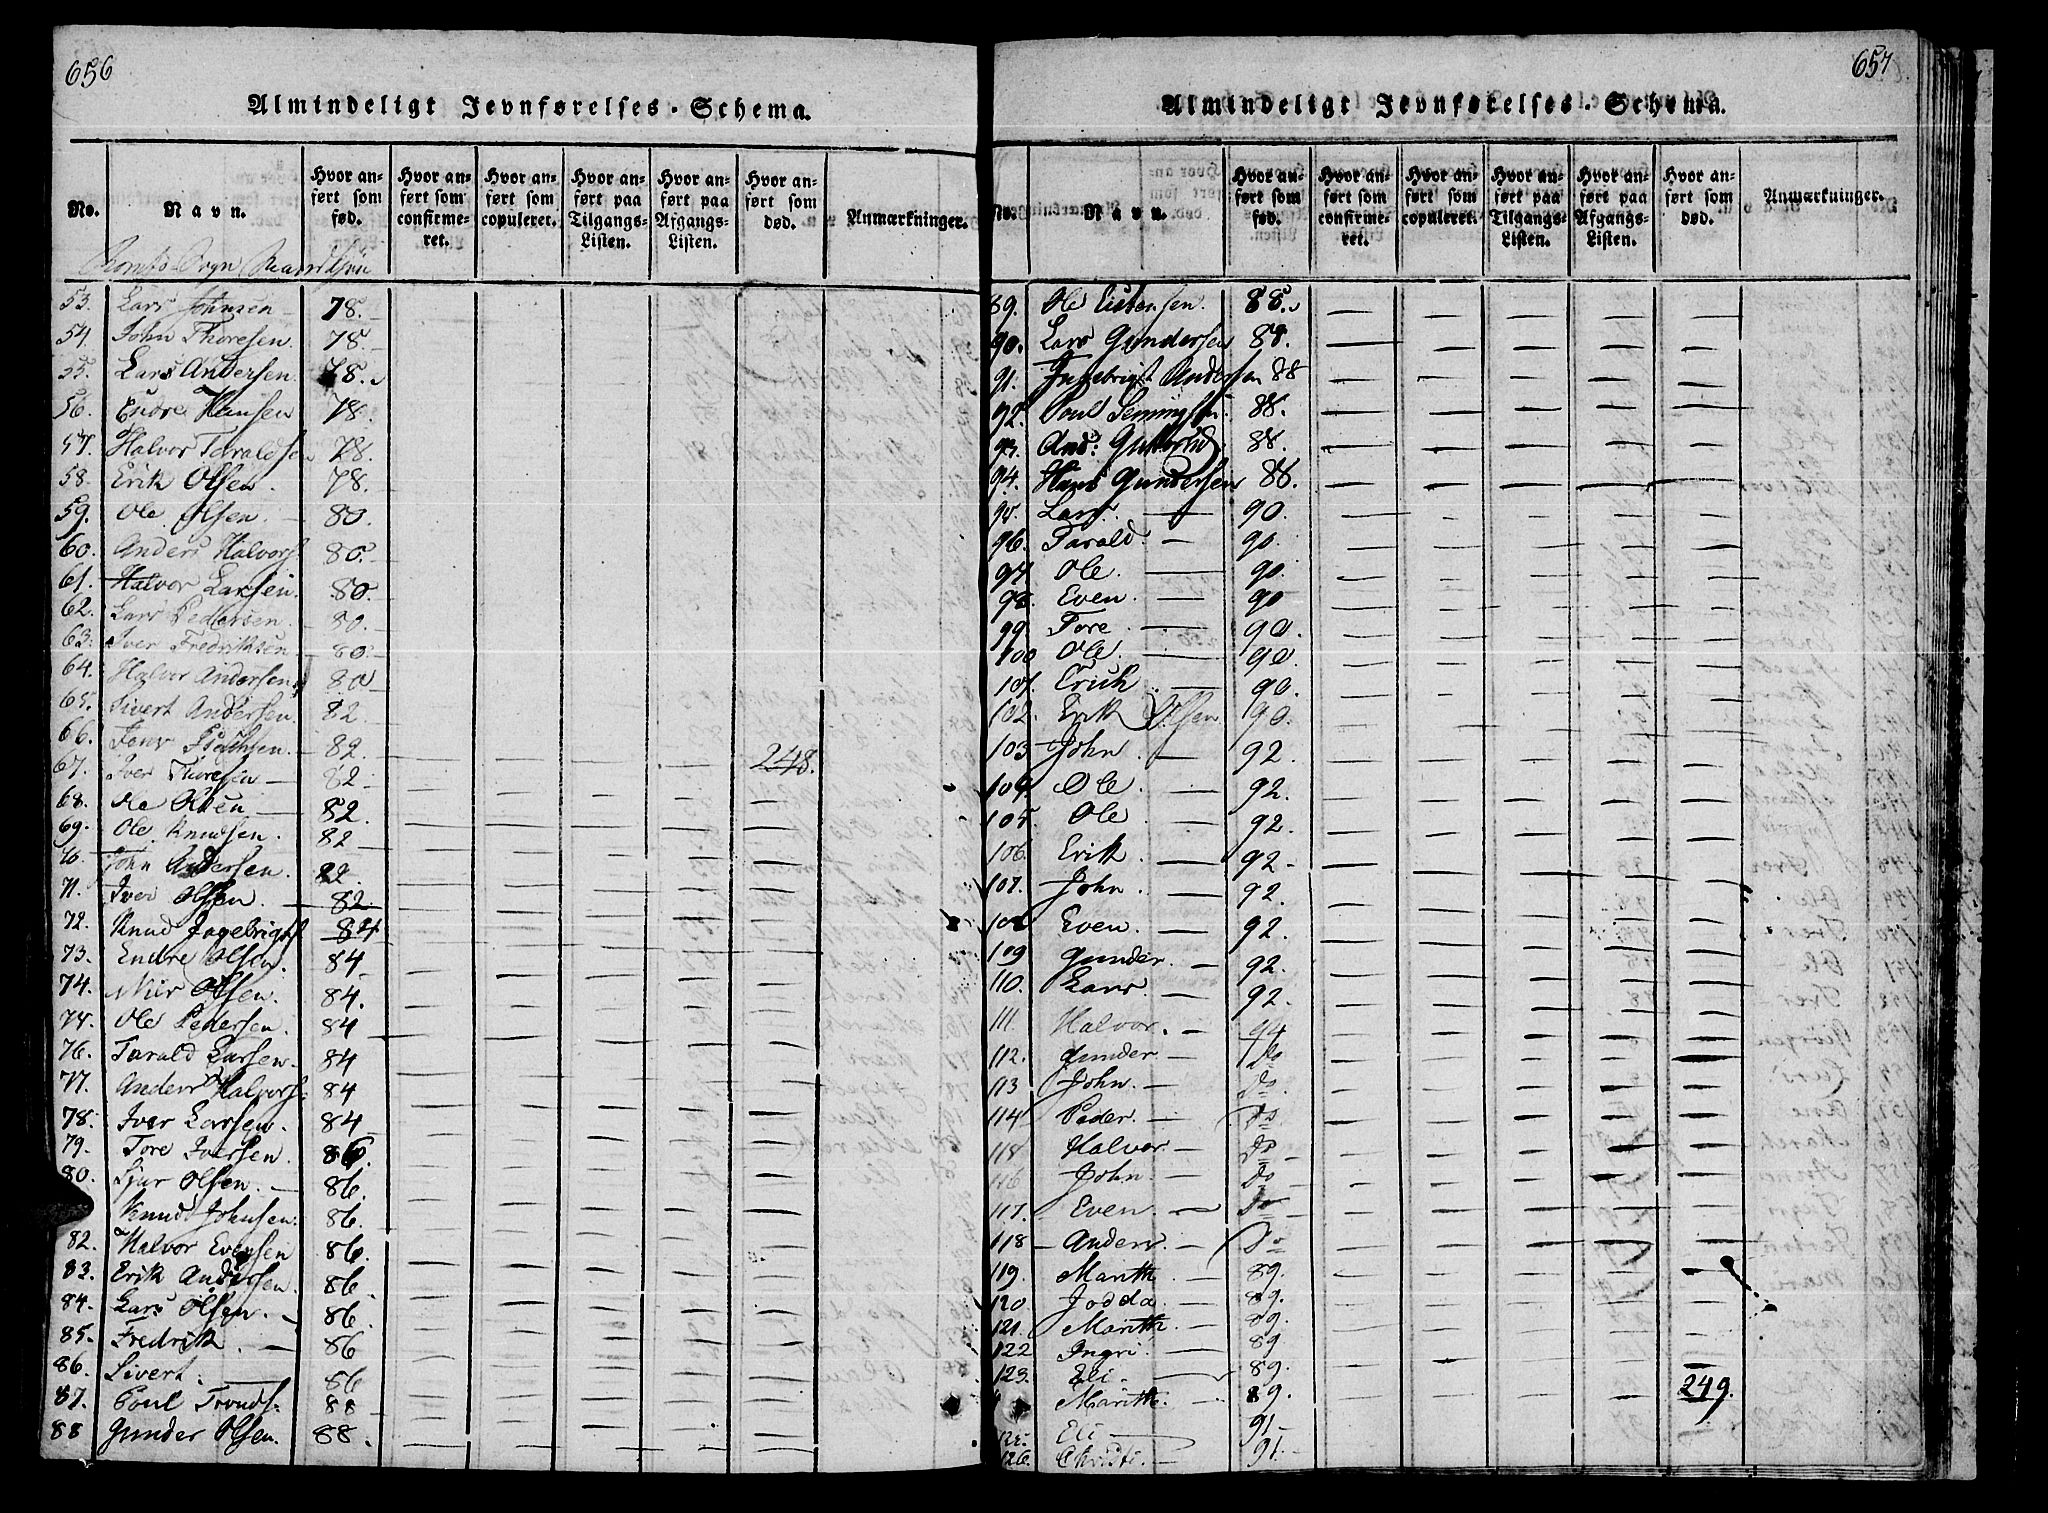 656
Almindeligt Jevnførelses-Schema.
No.
Navn.
Hvor anført som fød.
Hvor anført som confirmeret.
Hvor anført som copuleret.
Hvor anført paa Tilgangs-Listen.
Hvor anført paa Afgangs-Listen.
Hvor anført som død.
Anmærkninger.
Sogn
53. Lars Johnsen 78.
54. John Thoresen. 78.
55. Lars Andersen 78.
56. Endre Hansen 78.
57. Halvor Taraldsen 78.
58. Erik Olsen. 78.
59. Ole Olsen. 80.
60. Anders Halvors 80.
61. Halvor Larsen. 80.
62. Lars Pedersen 80.
63. Iver Fredriksen 80.
64. Halvor Andersen 80
65. Sivert Andersen. 82.
66. Jens 82.
67. Iver Thoresen 82 248.
68. Ole Olsen 82.
69. Ole Knudsen. 82
70. John Andersen. 82.
71. Iver Olsen. 82.
72. Knud Ingebrigts 84
73. Endre Olsen. 84.
74. Olsen. 84.
75. Ole Pedersen. 84
76. Tarald Larsen. 84
77. Anders Halvors: 84
78. Iver Larsen. 84
79. Tore Iversen. 86.
80. Sjur Olsen. 86.
Knud Johnsen. 86.
82. Halvor Evensen 86.
83. Erik Andersen. 86.
84. Lars Olsen. 86.
85. Fredrik. 86
86. Sivert. 86
87. Poul Tronds: 88
88 Gunder Olsen. 88.
657
Almindeligt Jevnførelses-Schema.
No.
Navn.
Hvor anført som fød.
Hvor anført som confirmeret.
Hvor anført som copuleret.
Hvor anført paa Tilgangs-Listen.
Hvor anført paa Afgangs-Listen.
Hvor anført som død.
Anmærkninger.
89. Ole 88.
90. Lars Gundersen 88.
91. Ingebrigt Andersen 88
92. Poul 88.
93. And: 88.
94. Hans Gundersen 88.
95. Lars. 90.
96. Tarald. 90.
97 Ole. 90.
98. Even. 90
99. Tore 90.
100 Ole. 90.
101. Erich 90.
102. Erik Olsen 90.
103 John 92.
104. Ole 92.
105. Ole 92.
106. Erik. 92
107. John. 92.
108 Even. 92.
109 Gunder. 92.
110. Lars. 92.
111. Halvor. 94
112. Gunder Do
113 John. Do.
114 Peder. Do.
115 Halvor. Do
116 John. Do
117. Even. Do
118 Anders. Do
119. Marith 89.
120. Jodda. 89.
121. Marith. 89.
122 Ingri 89
123. Eli. 89.
Marith. 89. 249.
125. Eli 91
126. Christi. 91.